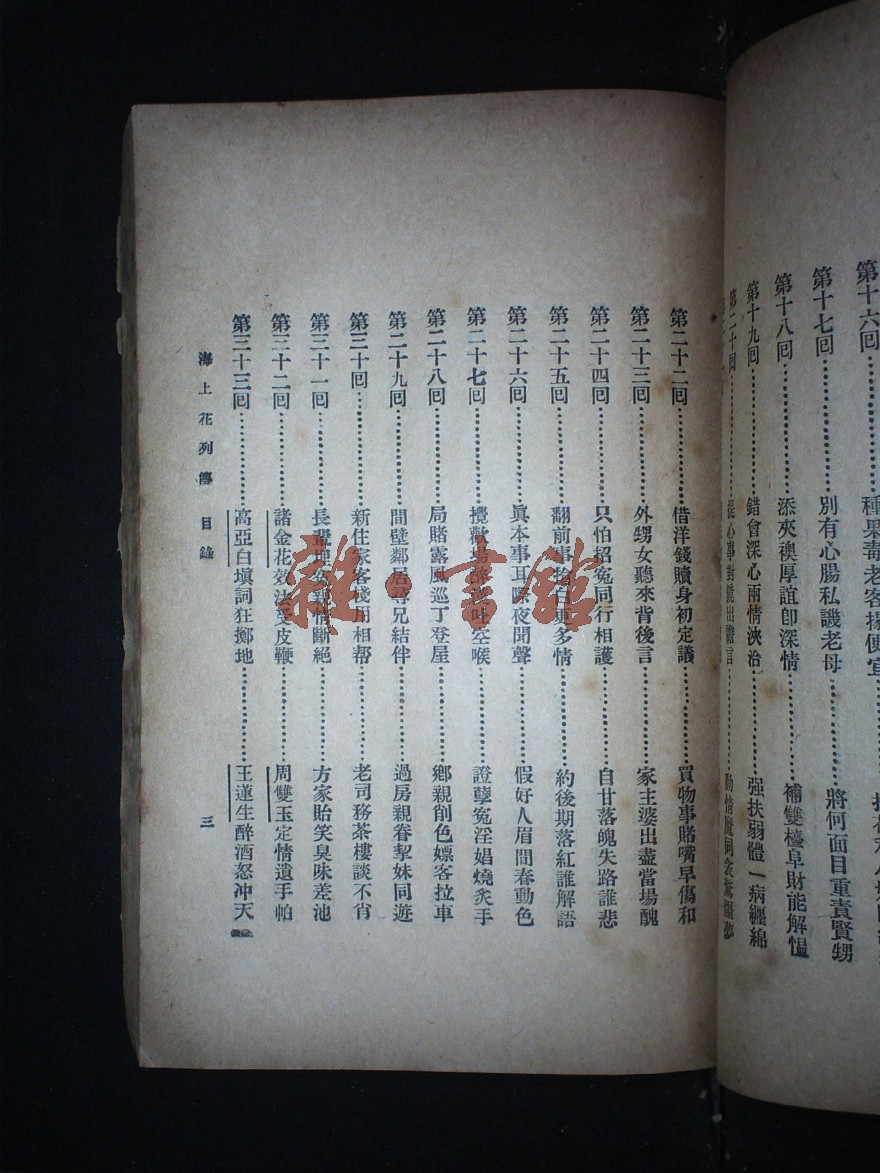 第十六回 種果毒老客揚便宜
第十七回………別有心腸私譏老母………將何面目重責賢甥
第十八回………添夾襖厚誼卽深情………補雙檯阜財能解慍
第十九回………錯會深心兩情浹洽………强扶弱體一病纏綿
第二十回
第二十二回………借洋錢贖身初定議………買物事賭嘴早傷和
第二十三回………外甥女聽來背後言………家主婆出盡當場醜
第二十四回………只怕招冤同行相護………自甘落魄失路誰悲
第二十五回………翻前事 白更多情………約後期落紅誰解語
第二十六回………眞本事耳際夜聞聲………假好人眉間春動色
第二十七回………攪歡場醉漢吐空喉………證孽冤淫娼燒炙手
第二十八回………局賭露風巡丁登屋………鄉親削色嫖客拉車
第二十九回………間壁鄰居尋兄結伴………過房親眷挈妹同遊
第三十回………新住家客棧用相帮………老司務茶樓談不肖
第三十一回………長輩埋冤親情斷絕………方家貽笑臭味差池
第三十二回………諸金花效法受皮鞭………周雙玉定情遺手帕
第三十三回………高亞白塡詞狂擲地………王蓮生醉酒怒冲天
海上花列傳 目錄 三
雜·書館